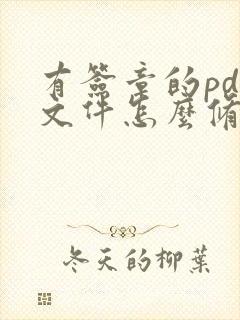 有簽章的pd
文件怎麼脩
冬天的柳葉